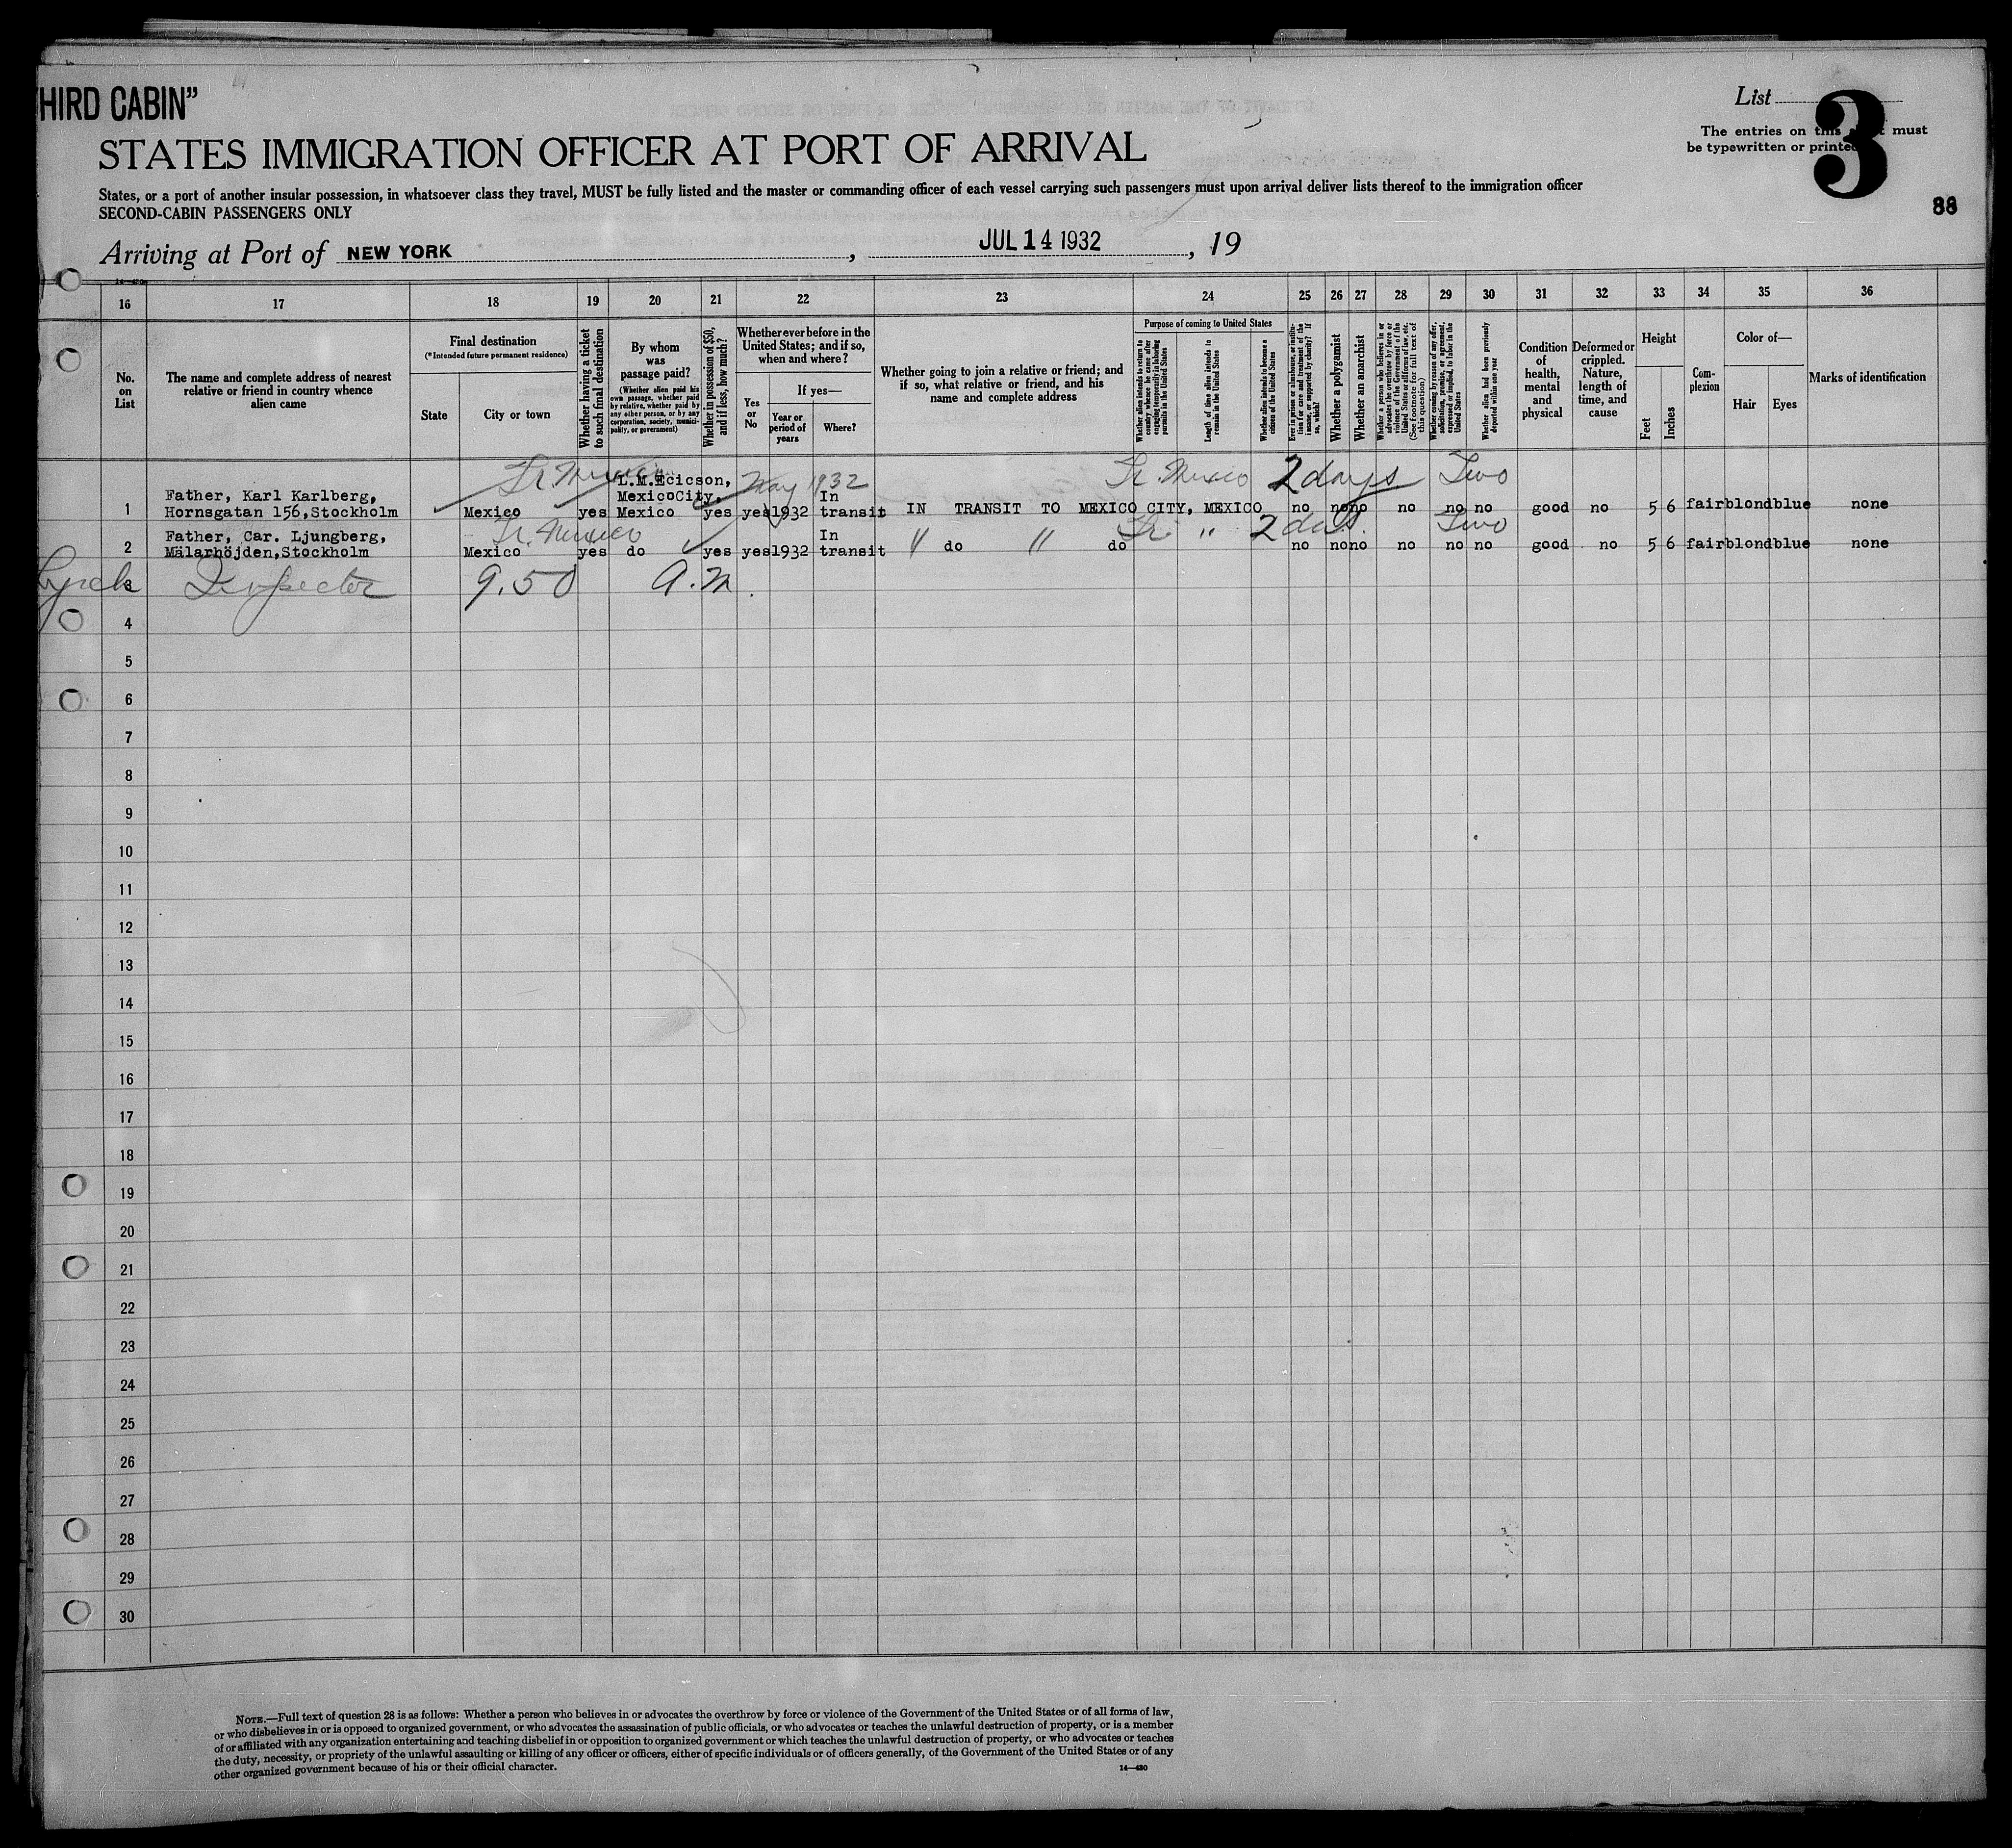 HIRD CABIN”
List
3
The entries on this must
be typewritten or printed
STATES IMMIGRATION OFFICER AT PORT OF ARRIVAL
States, or a port of another insular possession, in whatsoever class they travel, MUST be fully listed and the master or commanding officer of each vessel carrying such passengers must upon arrival deliver lists thereof to the immigration officer
SECOND-CABIN PASSENGERS ONLY
88
Arriving at Port of NEW YORK , JUL 14 1932 , 19
16 17 18 19 20 21 22 23 24 25 26 27 28 29 30 31 32 33 34 35 36
No.
on
List
The name and complete address of nearest
relative or friend in country whence
alien came
Final destination
(*Intended future permanent residence)
State
City or town
Whether having a ticket
to such final destination
By whom
was
passage paid?
(Whether alien paid his
own passage, whether paid
by relative, whether paid by
any other person, or by any
corporation, society, munici-
pality, or government)
Whether in possession of $50,
and if less, how much?
Whether ever before in the
United States; and if so,
when and where?
Yes
or
No
If yes—
Year or
period of
years
Where?
Whether going to join a relative or friend; and
if so, what relative or friend, and his
name and complete address
Purpose of coming to United States
Whether alien intends to return to
country whence he came after
engaging temporarily in laboring
pursuits in the United States
Length of time alien intends to
remain in the United States
Whether alien intends to become a
citizen of the United States
Ever in prison or almshouse, or institu-
tion for care and treatment of the
insane, or supported by charity? If
so, which?
Whether a polygamist
Whether an anarchist
Whether a person who believes in or
advocates the overthrow by force or
violence of the Government of the
United States or all forms of law, etc.
(See footnote for full text of
this question)
Whether coming by reason of any offer,
solicitation, promise, or agreement,
expressed or implied, to labor in the
United States
Whether alien had been previously
deported within one year
Condition
of
health,
mental
and
physical
Deformed or
crippled.
Nature,
length of
time, and
cause
Height
Feet
Inches
Com-
plexion
Color of—
Hair
Eyes
Marks of identification
Tr. Mexico May 1932 Tr. Mexico 2 days Two
L.M.Ecicson,
Father, Karl Karlberg, MexicoCity, In
1 Hornsgatan 156,Stockholm Mexico yes Mexico yes yes 1932 transit IN TRANSIT TO MEXICO CITY, MEXICO no no no no no no good no 5 6 fair blond blue none
Tr. Mexico Tr. " 2 days. Two
Father, Car. Ljungberg, In
2 Mälarhöjden,Stockholm Mexico yes do yes yes 1932 transit " do " do no no no no no no good no 5 6 fair blond blue none
Lynch 3 Inspector 9.50 a.m.
4
5
6
7
8
9
10
11
12
13
14
15
16
17
18
19
20
21
22
23
24
25
26
27
28
29
30
NOTE.—Full text of question 28 is as follows: Whether a person who believes in or advocates the overthrow by force or violence of the Government of the United States or of all forms of law,
or who disbelieves in or is opposed to organized government, or who advocates the assassination of public officials, or who advocates or teaches the unlawful destruction of property, or is a member
of or affiliated with any organization entertaining and teaching disbelief in or opposition to organized government or which teaches the unlawful destruction of property, or who advocates or teaches
the duty, necessity, or propriety of the unlawful assaulting or killing of any officer or officers, either of specific individuals or of officers generally, of the Government of the United States or of any
other organized government because of his or their official character.
14—430